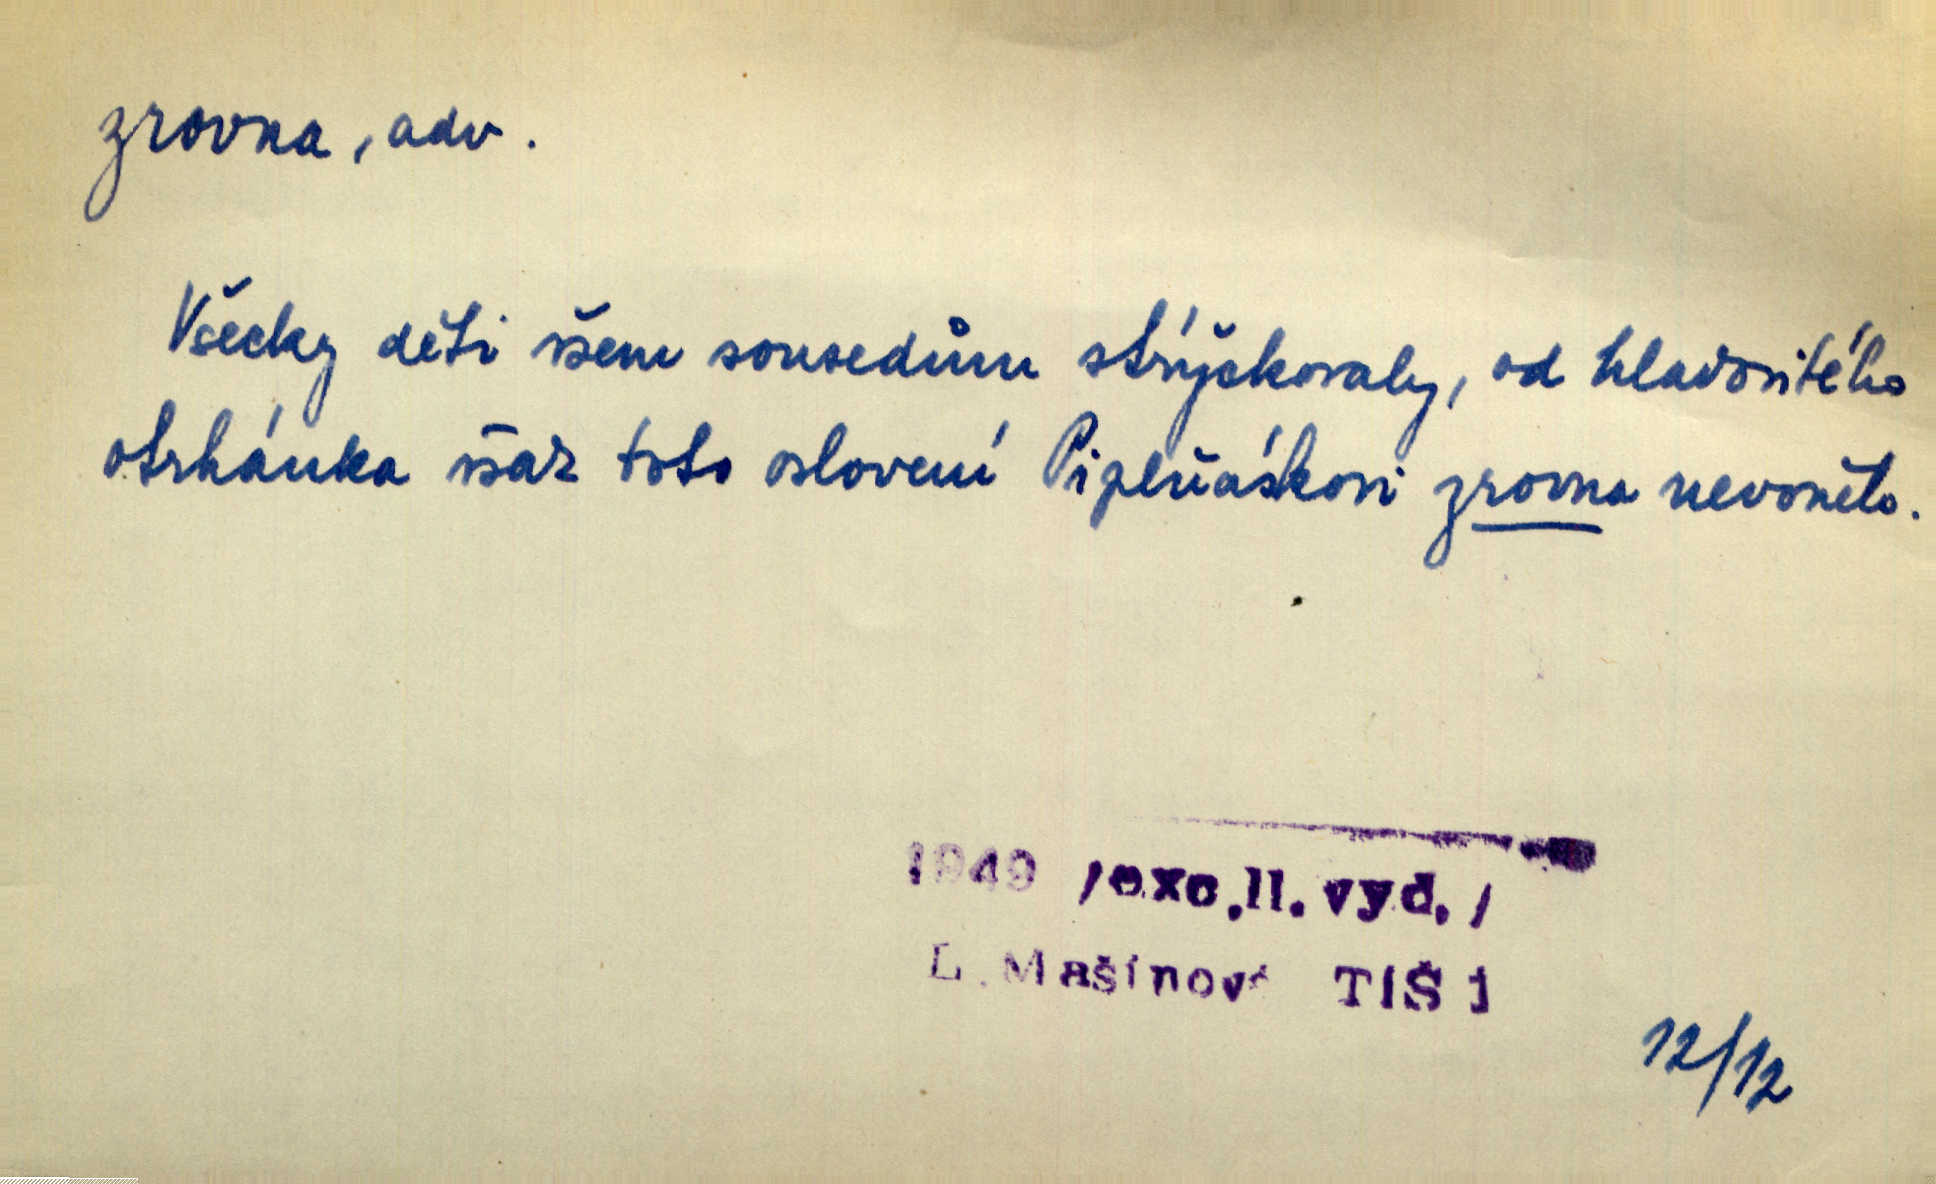 zrovna, adv.
Všecky děti všem sousedům strýčkovaly, od hlavovitého
otrhánka však toto oslovení Pipluňáskovi zrovna nevonělo.
1949 /exc.II.vyd./
L.Mašínová TIŠ 1
12/12